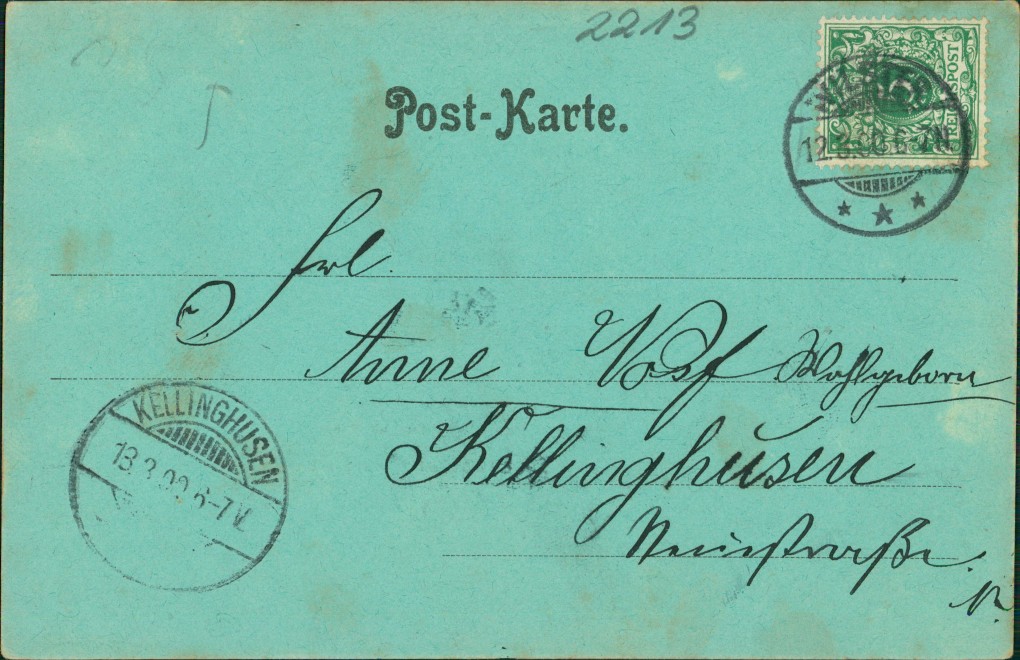 2213
Post-Karte.
5
REICHSPOST
12. 3. 00. 6-7N.
Frl.
Anne Voss Wohlgeborn
Kellinghusen
Neuestraße.
KELLINGHUSEN
13.3.00.6-7V.